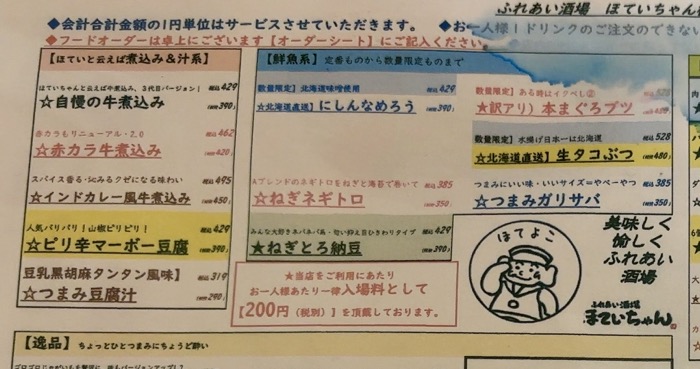 ふれあい酒場 ほていちゃん
◆会計合計金額の1円単位はサービスさせていただきます。 ◆お一人様1ドリンクのご注文のできない
◆フードオーダーは卓上にございます【オーダーシート】にご記入ください。
【ほていと云えば煮込み&汁系】
ほていちゃんと云えば牛煮込み、3代目バージョン! 税込429
☆自慢の牛煮込み (税抜390)
赤カラもリニューアル・2.0 税込462
☆赤カラ牛煮込み (税抜420)
スパイス香る・沁みるクゼになる味わい 税込495
☆インドカレー風牛煮込み (税抜450)
人気バリバリ!山椒ピリピリ! 税込429
☆ピリ辛マーボー豆腐 (税抜390)
豆乳黒胡麻タンタン風味】 税込319
☆つまみ豆腐汁 (税抜290)
【鮮魚系】 定番ものから数量限定ものまで
数量限定】北海道味噌使用 税込429
☆北海道直送】にしんなめろう (税抜390)
Aブレンドのネギトロをねぎと海苔で巻いて 税込385
☆ねぎネギトロ (税抜350)
みんな大好きネバネバ系・匂い抑え目ひきわりタイプ 税込429
☆ねぎとろ納豆 (税抜390)
数量限定】ある時はイクべし② 税込528
★訳アリ）本まぐろブツ (税抜480)
数量限定】水揚げ日本一は北海道 税込528
☆北海道直送】生タコぶつ (税抜480)
つまみにいい味・いいサイズ=やべーやつ 税込385
☆つまみガリサバ (税抜350)
★当店をご利用にあたり
お一人様あたり一律入場料として
【200円（税別）】を頂戴しております。
ほてよこ
美味しく
愉しく
ふれあい
酒場
ふれあい酒場
ほていちゃん
【逸品】 ちょっとひとつまみにちょうど酔い